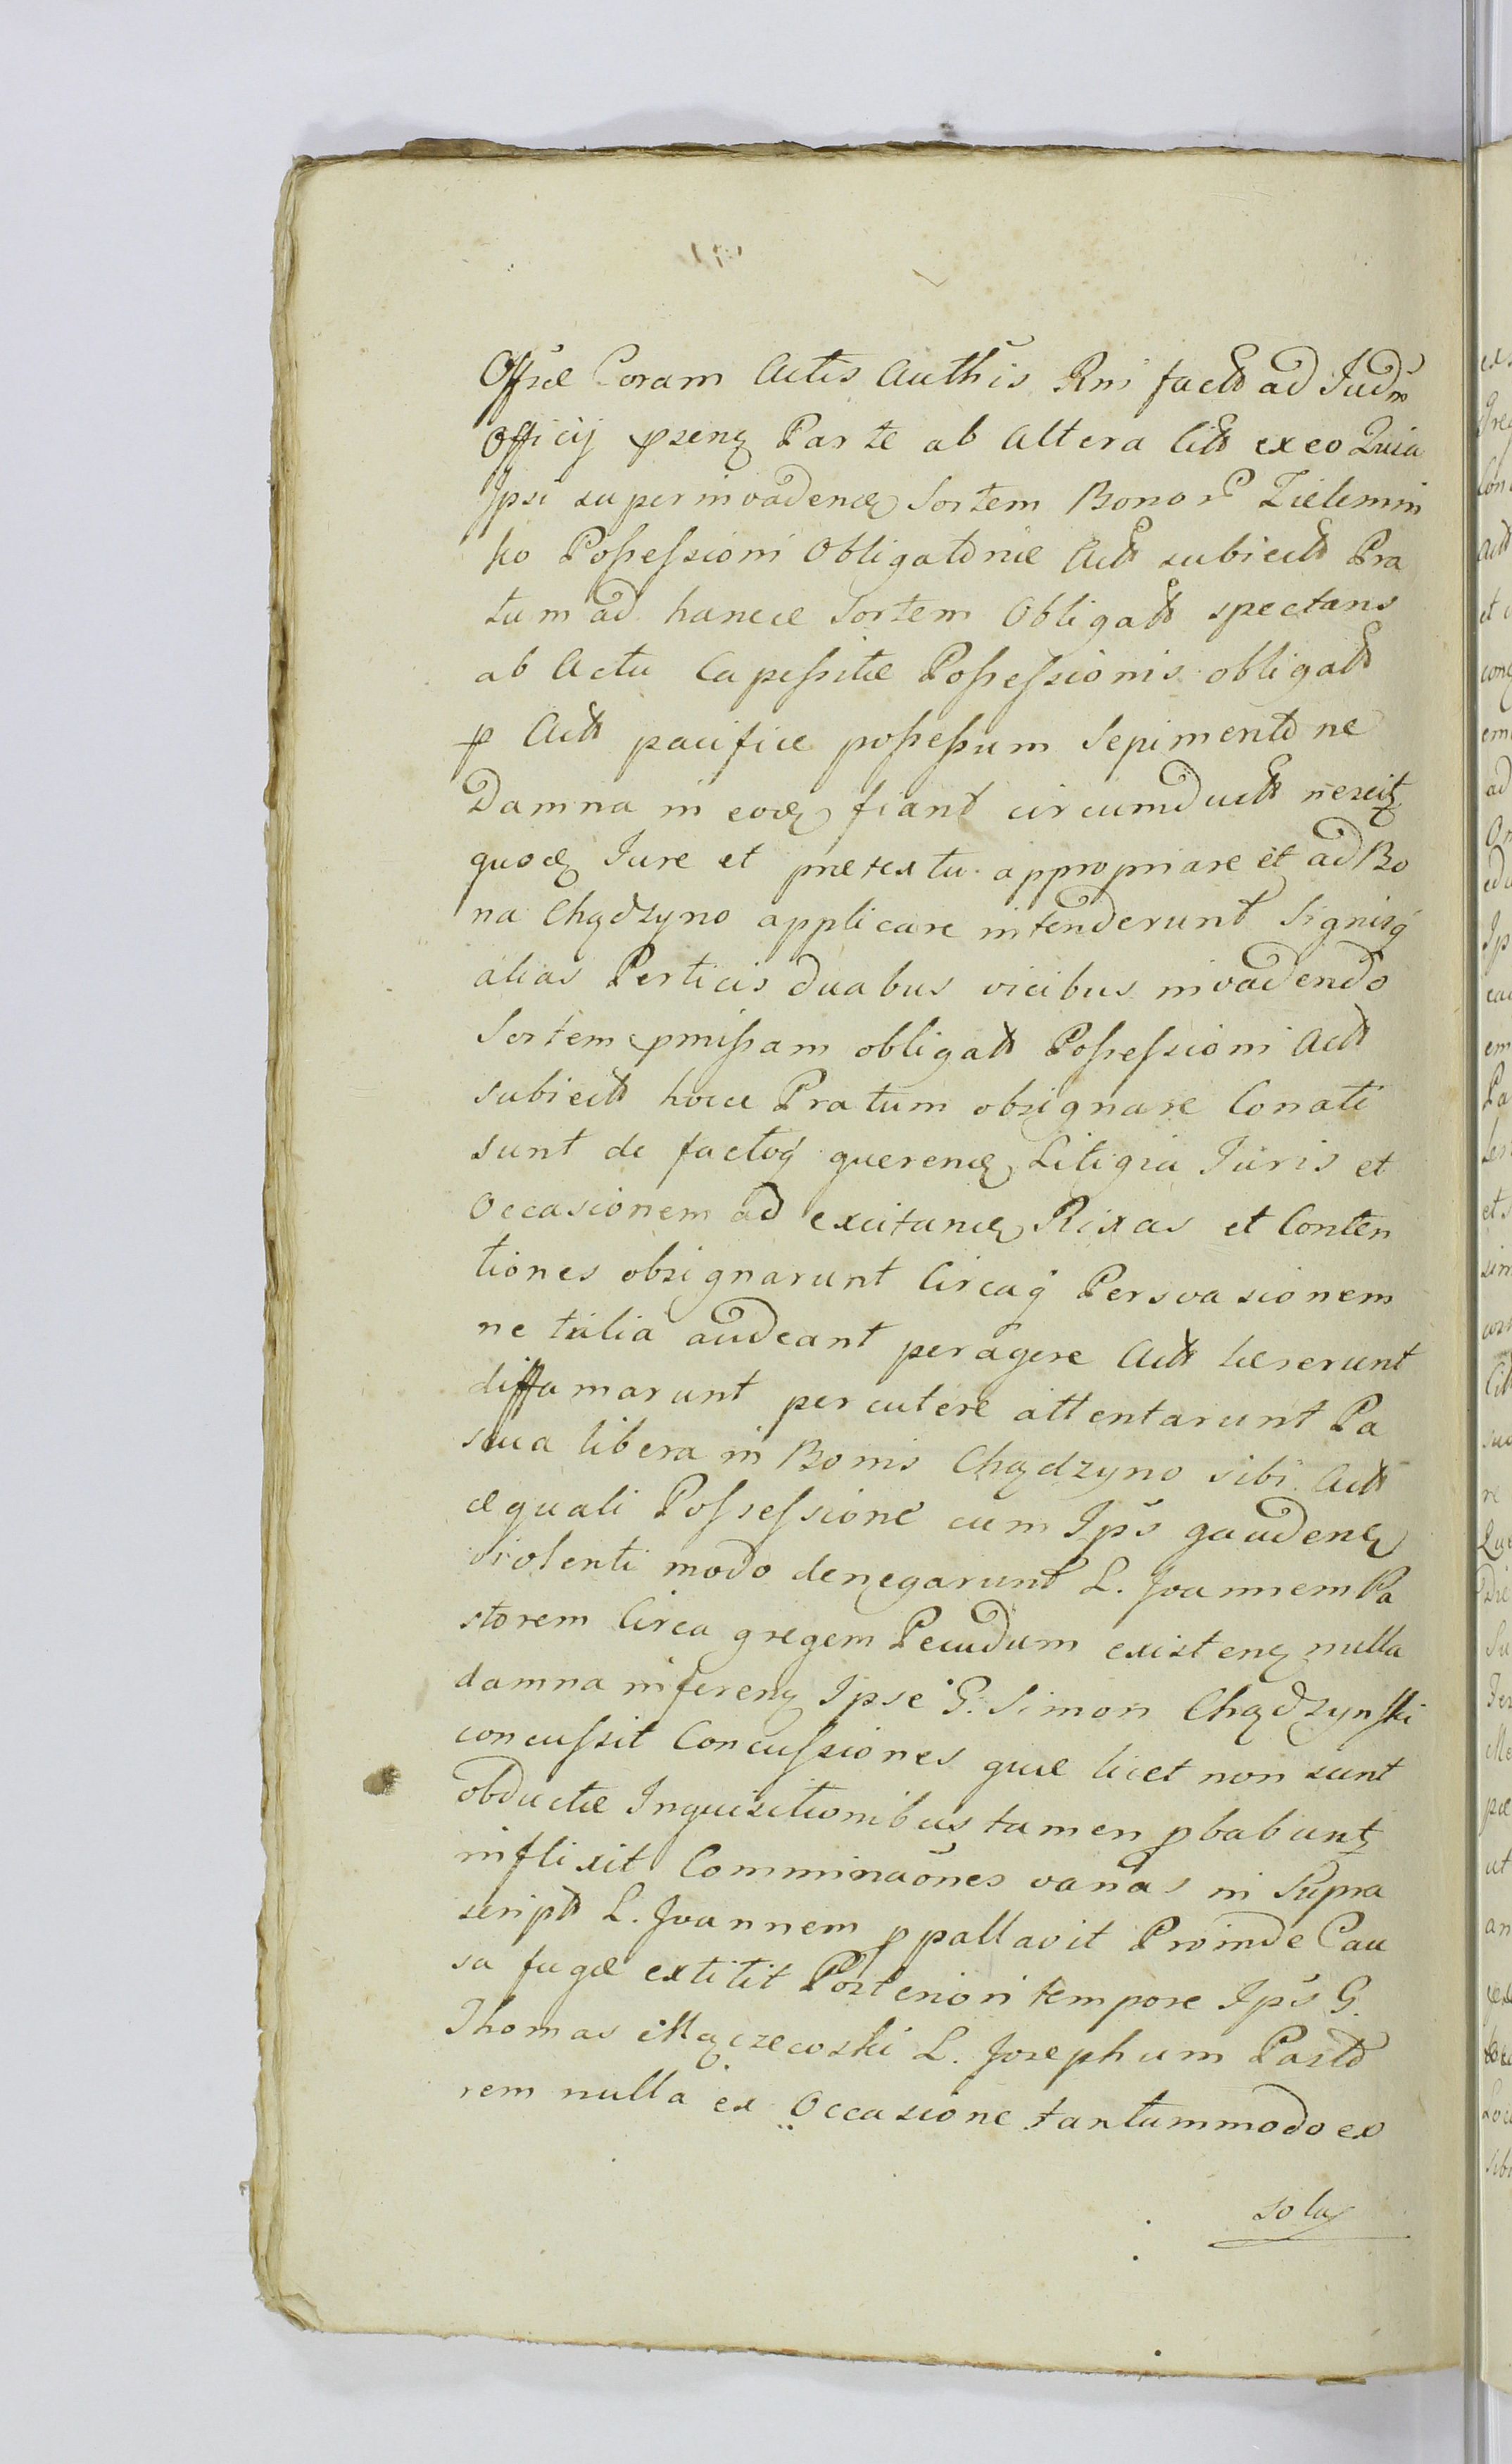 Offsæ Coram Actis Authis Rni fact ad Iudm
Officij psenz Parte ab Altera Citt ex eo Quia
Ipsi super invadendz Sortem Bonor Zielemin
ko Possessioni Obligatoriæ Act subiect Pra
tum ad hancce Sortem Obligatt spectans
ab Actu Capessitæ Possessionis obligatt
p Act pacifice possessum Sepimento ne
Damna in eodz fiant circumduct nescitz
quodz Iure et prætextu appropriare et ad Bo
na Chądzyno applicare intenderunt Signisq
alias Perticis duabus vicibus invadendo
Sortem pmissam obligatt Possessioni Act
subiect hocce Pratum obsignare Conati
sunt de factoq querendz Litigia Iuris et
Occasionem ad excitandz Rixas et Conten
tiones obsignarunt Circaq Persvasionem
ne talia audeant peragere Act læserunt
diffamarunt percutere attentarunt Pa
scua libera in Bonis Chądzyno sibi Act
æquali Possessione cum Ips gaudenz
violenti modo denegarunt L. Joannem Pa
storem Circa gregem Pecudum existenz nulla
damna inferenz Ipse G. Simon Chądzynski
concussit Concussiones quæ licet non sunt
obductæ Inquisitionibus tamen pbabuntz
inflixit Comminaones varias in Supra
script L. Joannem ppallavit Proinde Cau
sa fugæ extitit Posteriori tempore Ips G.
Thomas Mączewski L. Josephum Pasto
rem nulla ex Occasione tantummodo ex
sola